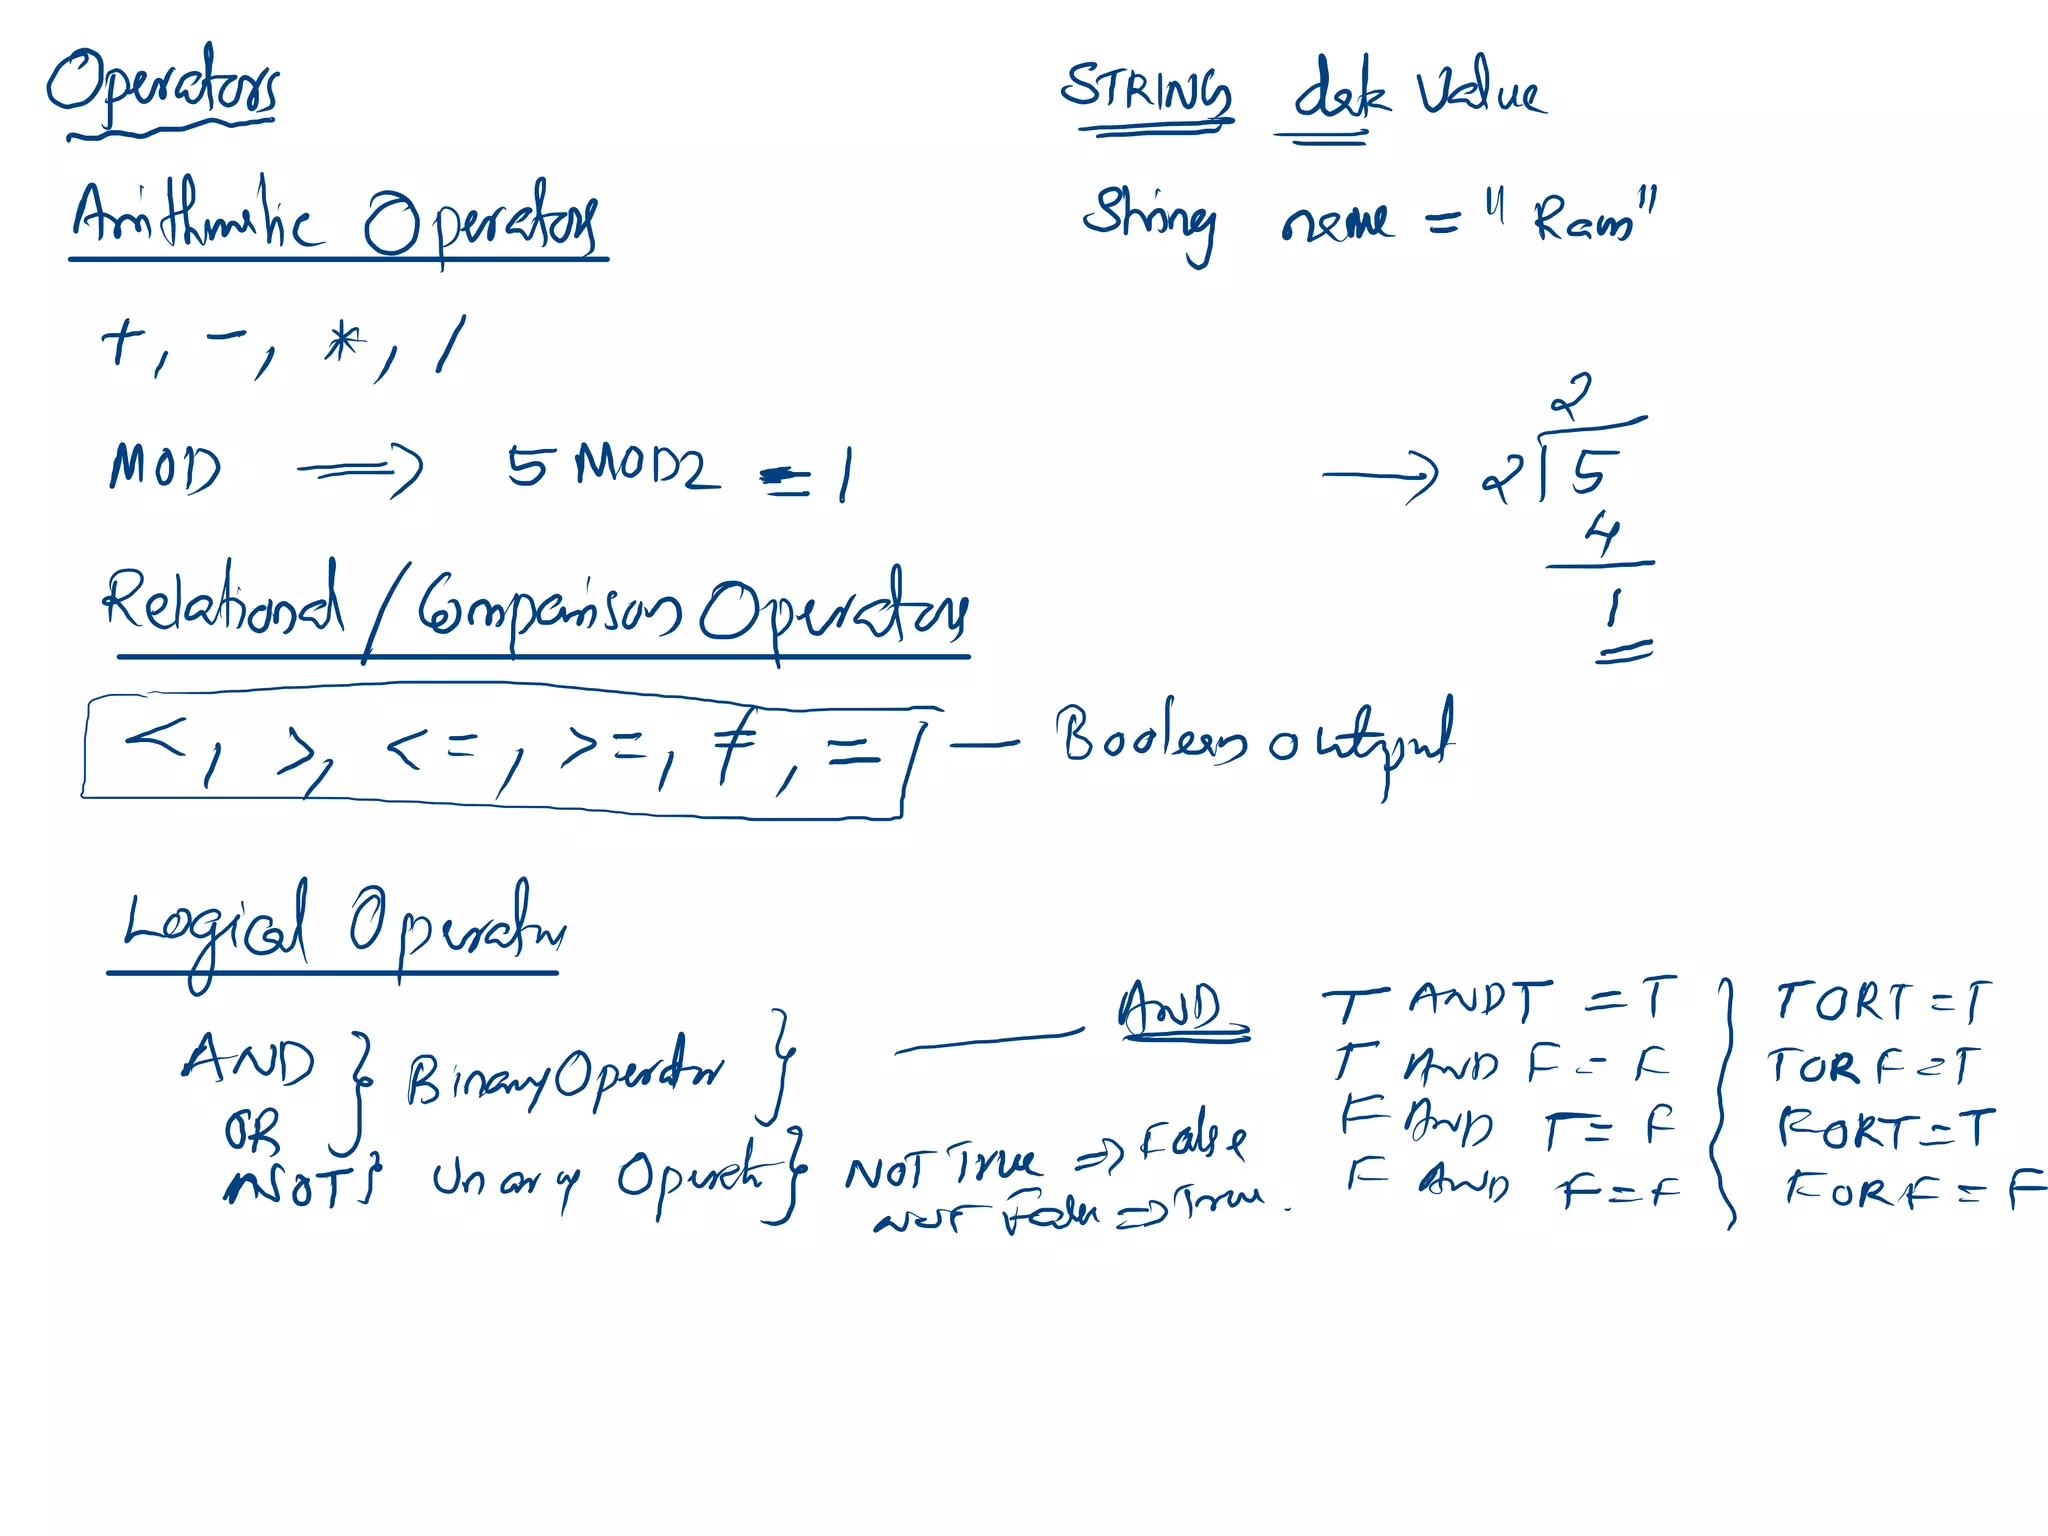 Operators
STRING data Value
Arithmetic Operators
String name = "Ram"
+, -, *, /
MOD ⟹ 5 MOD2 = 1
→ 2 5
2
4
1
Relational / Comparison Operators
<, >, <=, >=, ≠, = — Boolean output
Logical Operator
AND } Binary Operator } — AND
OR
NOT } Unary Operator } NOT True ⇒ False
NOT False ⇒ True.
T AND T = T
T AND F = F
F AND T = F
F AND F = F
T OR T = T
T OR F = T
F OR T = T
F OR F = F